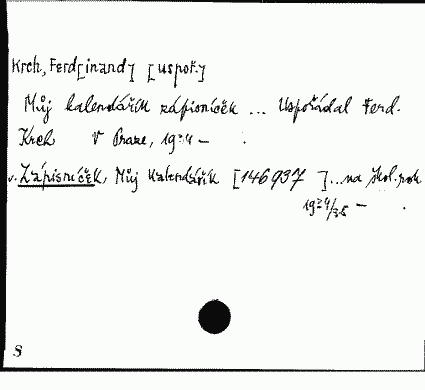 Krch, Ferd[inand] [uspoř.]
Můj kalendářík zápisníček ... Uspořádal Ferd.
Krch V Praze, 1934 –
v. Zápisníček, Můj Kalendářík [146937 ]...na škol. rok
1934/35 –
S